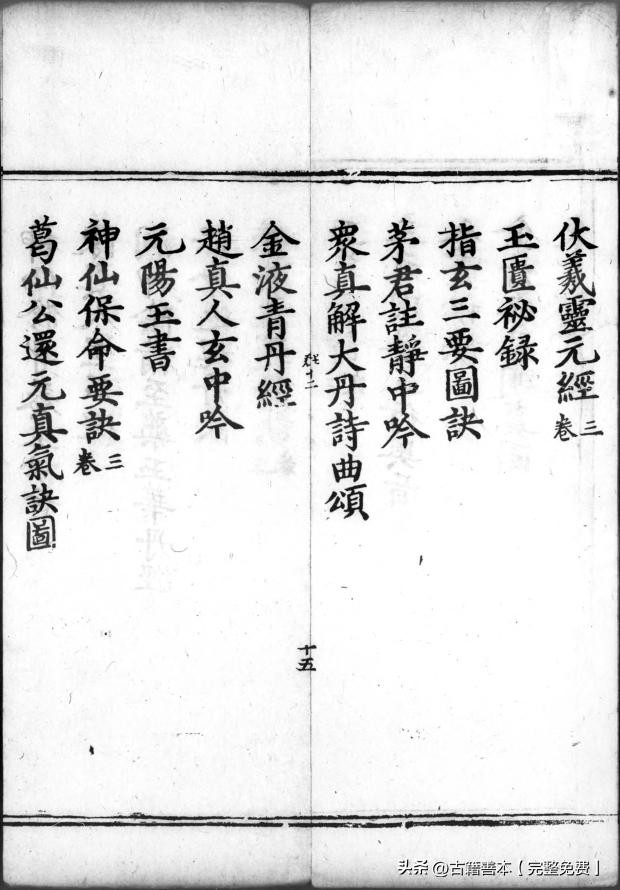 伏羲靈元經三卷
玉匱祕録
指玄三要圖訣
茅君註靜中吟
衆真解大丹詩曲頌
十二
十五
金液青丹經
趙真人玄中吟
元陽玉書
神仙保命要訣三卷
葛仙公還元真氣訣圖
头条@古籍善本【完整免费】